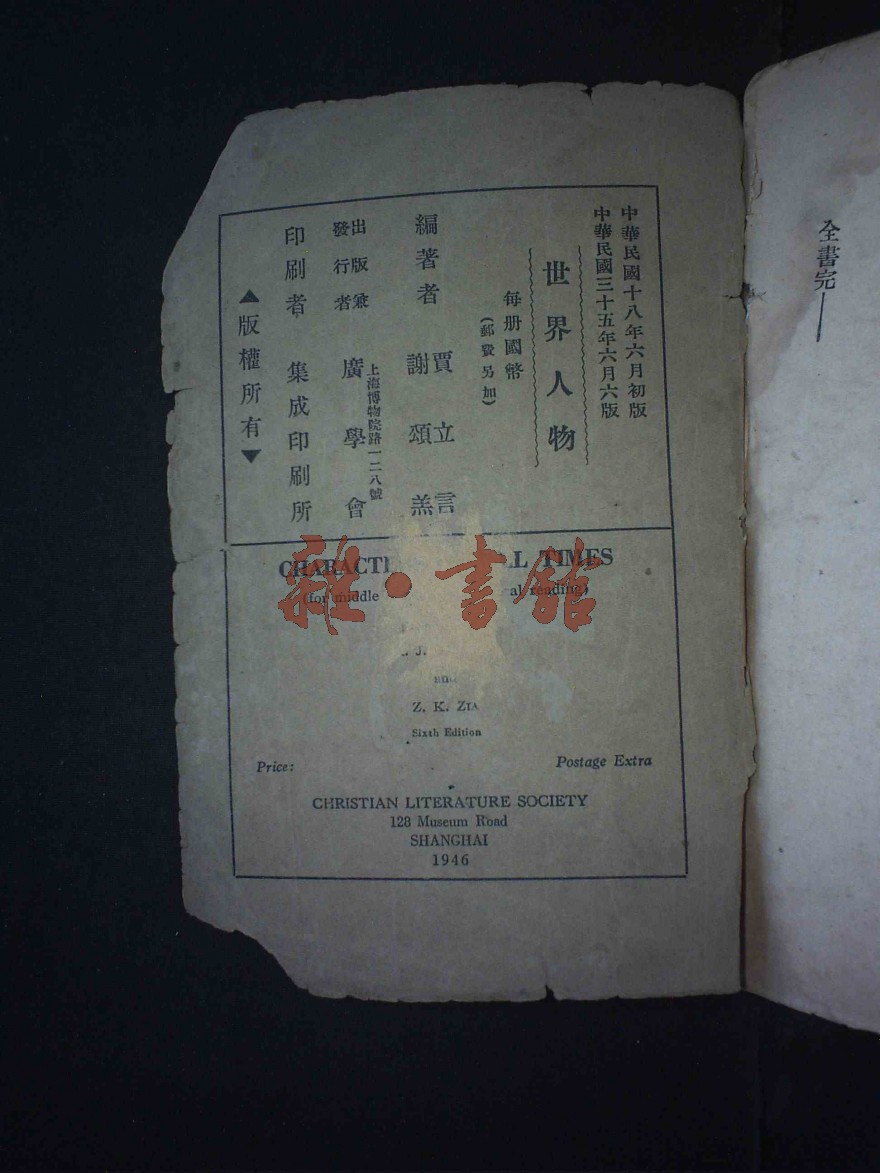 全書完
中華民國十八年六月初版
中華民國三十五年六月六版
世界人物
每册國幣
(郵費另加)
編著者 賈立言 謝頌羔
出版兼發行者 廣學會
上海博物院路一二八號
印刷者 集成印刷所
▲版權所有▼
CHARACTE LL TIMES
(for middle al reading)
J.
Z. K. ZIA
Sixth Edition
Price: Postage Extra
CHRISTIAN LITERATURE SOCIETY
128 Museum Road
SHANGHAI
1946
雜·書館